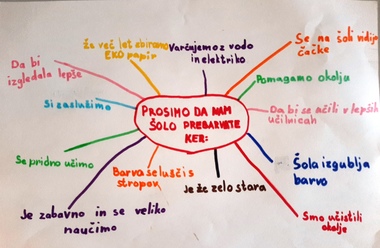 PROSIMO DA NAM
ŠOLO PREBARVATE
KER:
Že več let zbiramo
EKO papir
Varčujemo z vodo
in elektriko
Se na šoli vidijo
čačke
Da bi
izgledala lepše
Pomagamo okolju
Si zaslužimo
Da bi se učili v lepših
učilnicah
Se pridno učimo
Šola izgublja
barvo
Barva se lušči s
stropov
Je že zelo stara
Je zabavno in se veliko
naučimo
Smo učistili
okolje